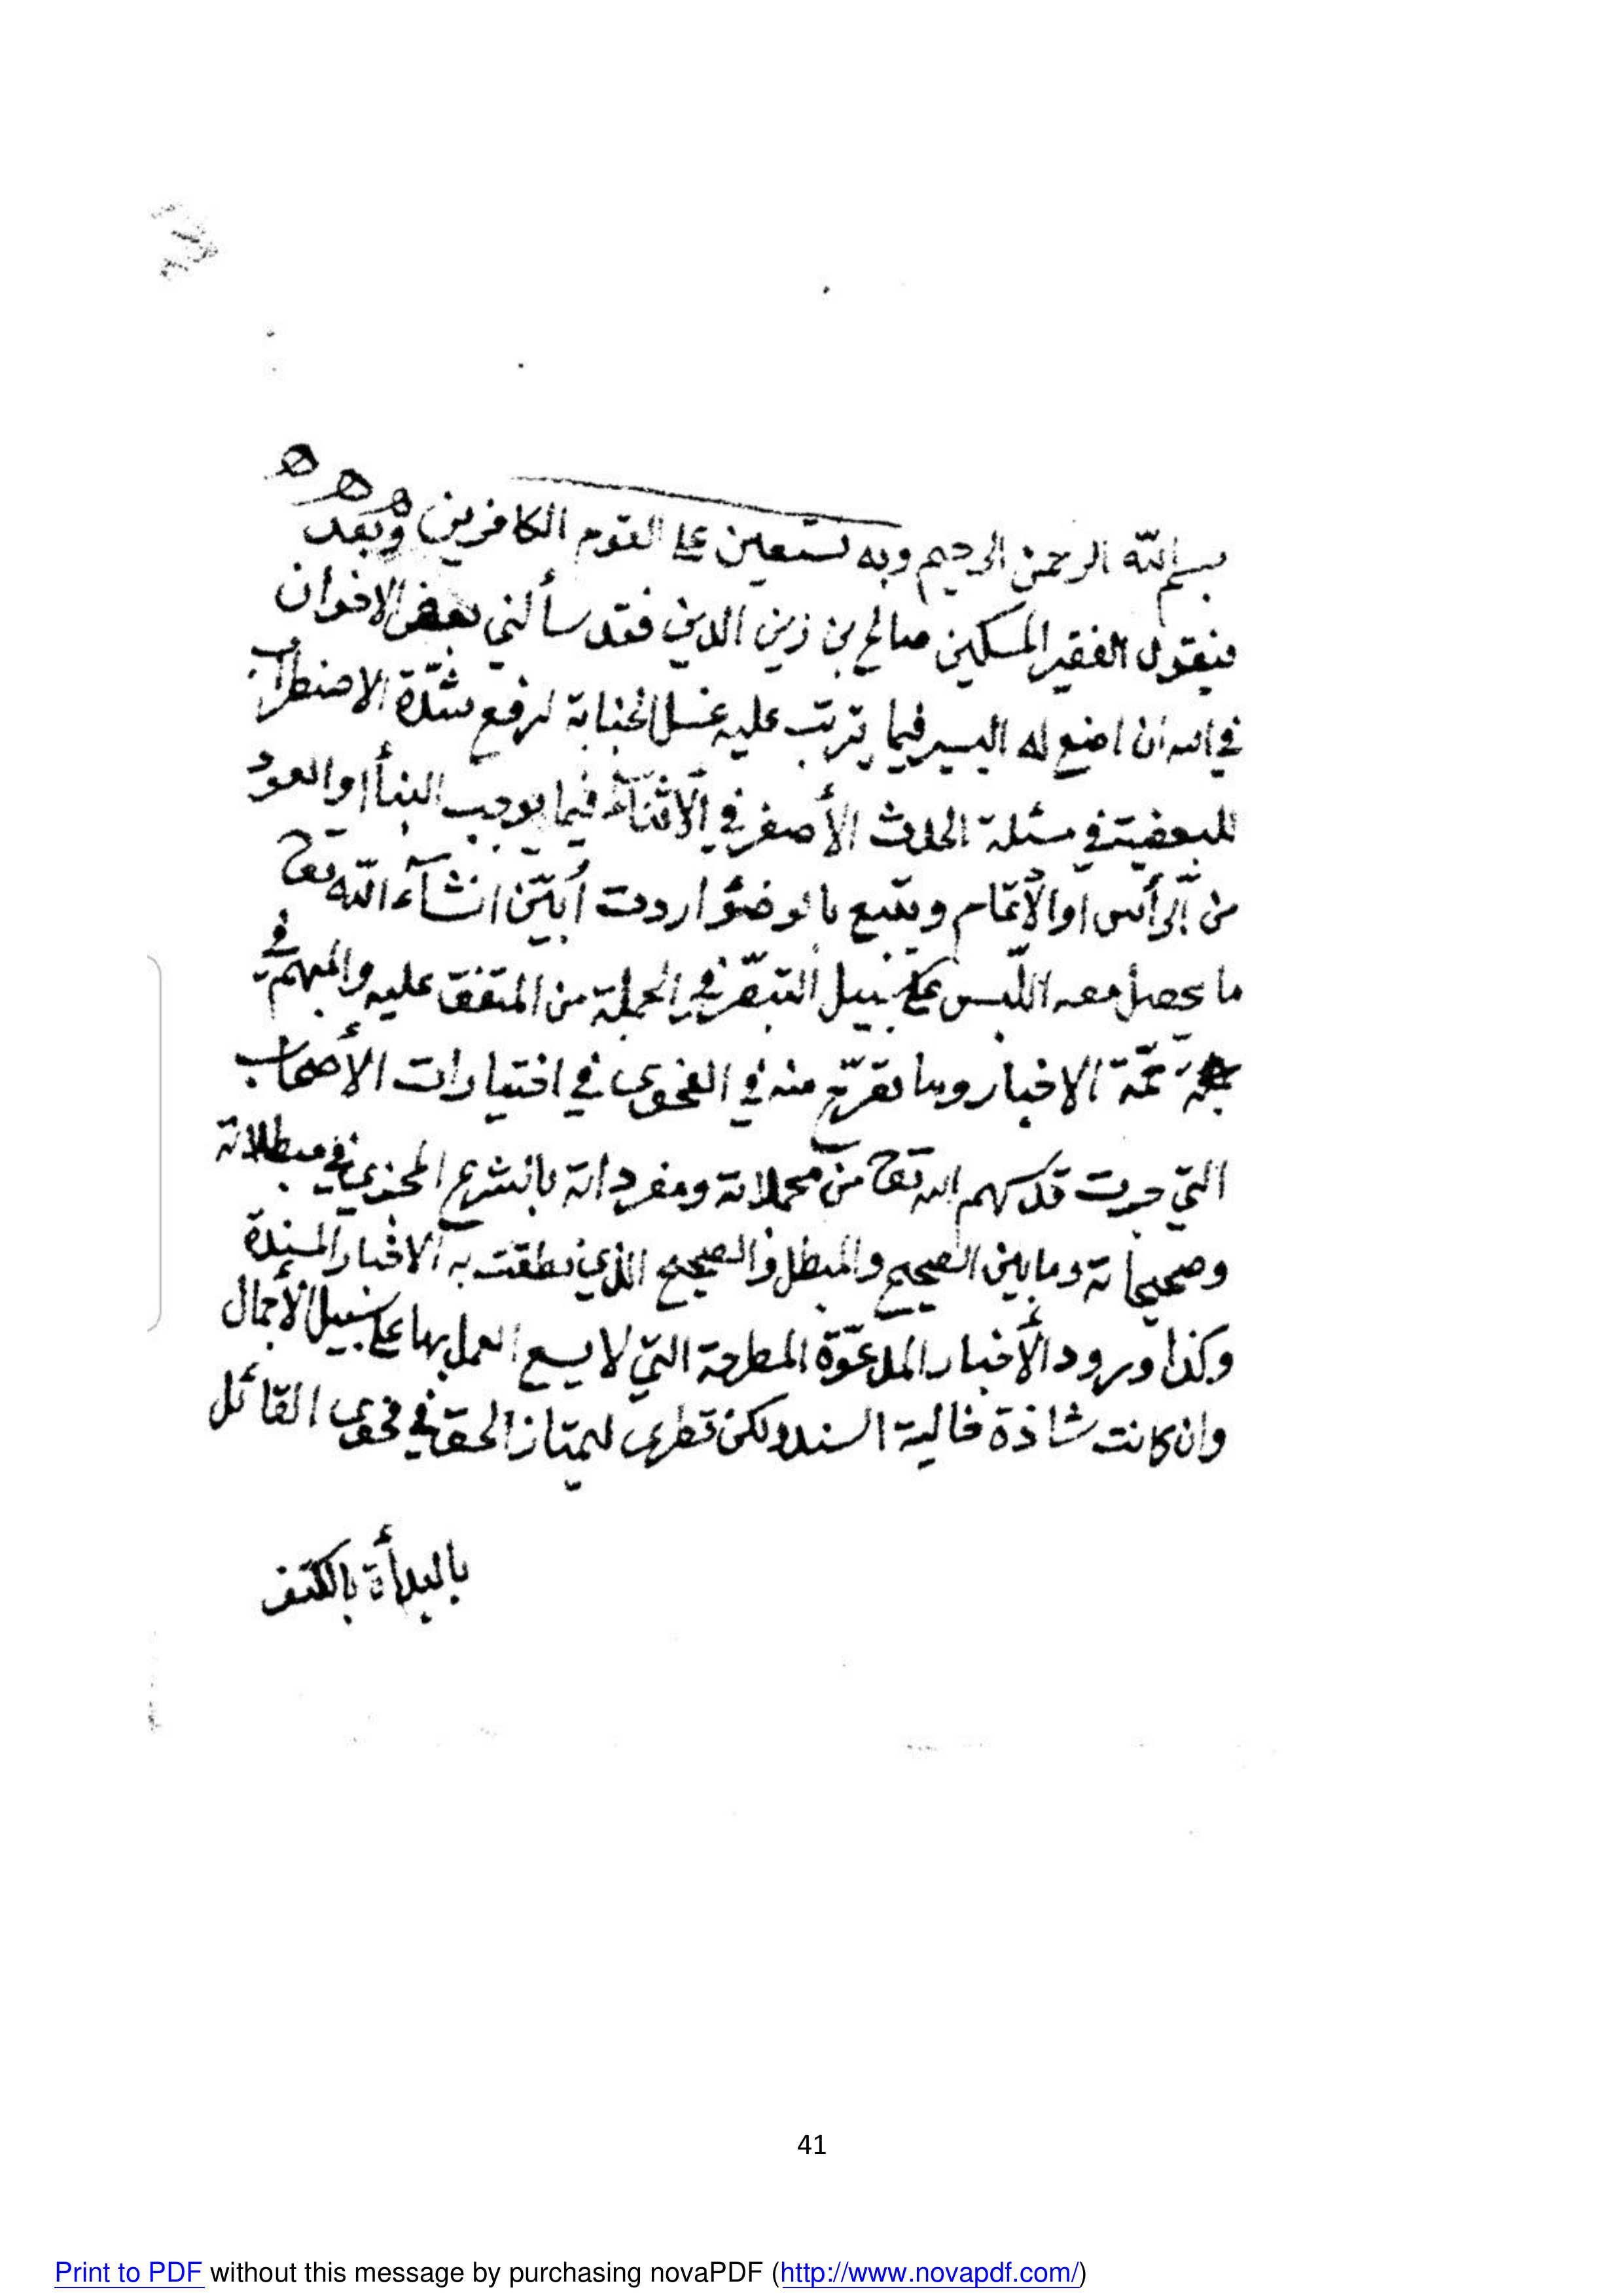 بسم الله الرحمن الرحيم وبه نستعين على القوم الكافرين وبعد
فيقول الفقير المسكين صالح بن زين الدين فقد سألني بعض الاخوان
في الله ان اضع له اليسير فيما يترتب عليه غسل الجنابة لرفع شدّة الاضطراب
للبعضية في مسئلة الحدث الأصغر في الأثناء فيما يوجب البنأ او العود
من الرأس او الأتمام ويتبع بالوضؤ اردت أبيّن انشآء الله تعا
ما يحصل معه اللبس على سبيل التبصّر في الجملة من المتفق عليه والمبهم في
تتمّة الاخبار وما تفرّع منه في الفحوى في اختيارات الأصحاب
التي جرت لهم الله تعا من محملاته ومفرداته بالشرع المجزي في مبطلاته
وصحيحاته وما بين الصحيح والمبطل والصحيح الذي نطقت به الاخبار المسندة
وكذا ورود الأخبار المدعوّة المطرحة التي لا يسع العمل بها على سبيل الأجمال
وان كانت شاذة خالية السند ولكن تطرى ليمتاز الحق في فحوى القائل
بالبدأة بالكتف
41
Print to PDF without this message by purchasing novaPDF (http://www.novapdf.com/)